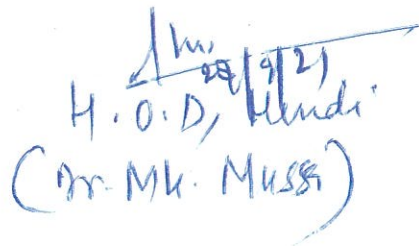 28/9/21
H.O.D, Hindi
(Dr. Mk. Mussi)